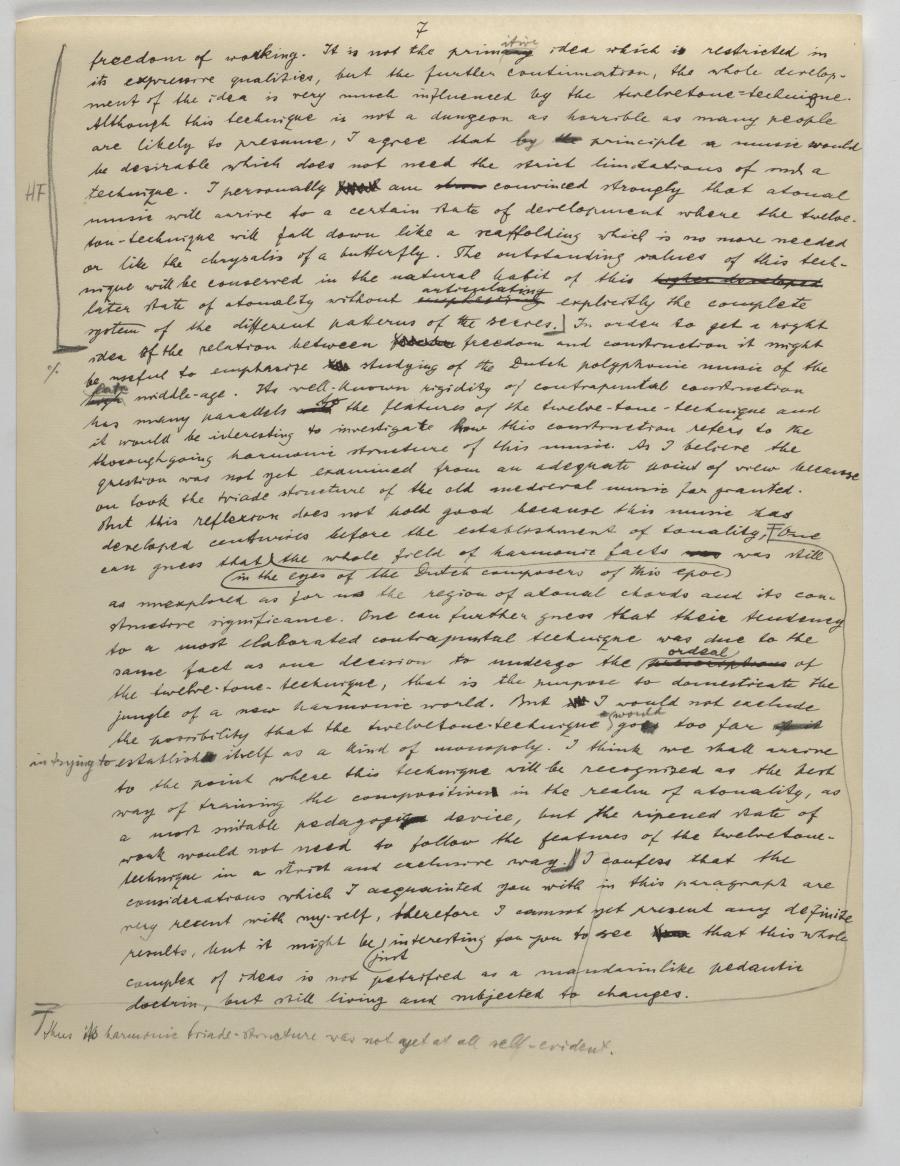 7
freedom of working. It is not the primitive idea which is restricted in
its expressive qualities, but the further continuation, the whole develop-
ment of the idea is very much influenced by the twelvetone-technique.
Although this technique is not a dungeon as horrible as many people
are likely to presume, I agree that by principle a music would
be desirable which does not need the strict limitations of such a
HF technique. I personally am convinced strongly that atonal
music will arrive to a certain state of development where the twelve-
ton-technique will fall down like a scaffolding which is no more needed
or like the chrysalis of a butterfly. The outstanding values of this tech-
nique will be conserved in the natural habit of this higher developed
articulating
later state of atonality without emphasizing explicitly the complete
system of the different patterns of the series.] In order to get a right
idea of the relation between freedom and construction it might
% be useful to emphasize studying of the Dutch polyphonic music of the
late
high middle-age. Its well-known rigidity of contrapuntal construction
has many parallels to the features of the twelve-tone-technique and
it would be interesting to investigate how this construction refers to the
thoroughgoing harmonic structure of this music. As I believe the
question was not yet examined from an adequate point of view because
on took the triade structure of the old medieval music for granted.
But this reflexion does not hold good because this music was
developed centuries before the establishment of tonality, One
can guess that the whole field of harmonic facts was still
(in the eyes of the Dutch composers of this epoc)
as unexplored as for us the region of atonal chords and its con-
structive significance. One can further guess that their tendency
to a most elaborated contrapuntal technique was due to the
ordeal
same fact as our decision to undergo the prescriptions of
the twelve-tone-technique, that is the purpose to domesticate the
jungle of a new harmonic world. But I would not exclude
would
the possibility that the twelvetone-technique goes too far
in trying to establish itself as a kind of monopoly. I think we shall arrive
to the point where this technique will be recognized as the best
way of training the composition in the realm of atonality, as
a most suitable pedagogic device, but the ripened state of
work would not need to follow the features of the twelvetone-
technique in a strict and exclusive way.] I confess that the
considerations which I acquainted you with in this paragraph are
very recent with my-self, therefore I cannot yet present any definite
results, but it might be interesting for you to see that this whole
just
complex of ideas is not petrified as a mandarinlike pedantic
doctrin, but still living and subjected to changes.
thus its harmonic triade-structure was not yet at all self-evident.